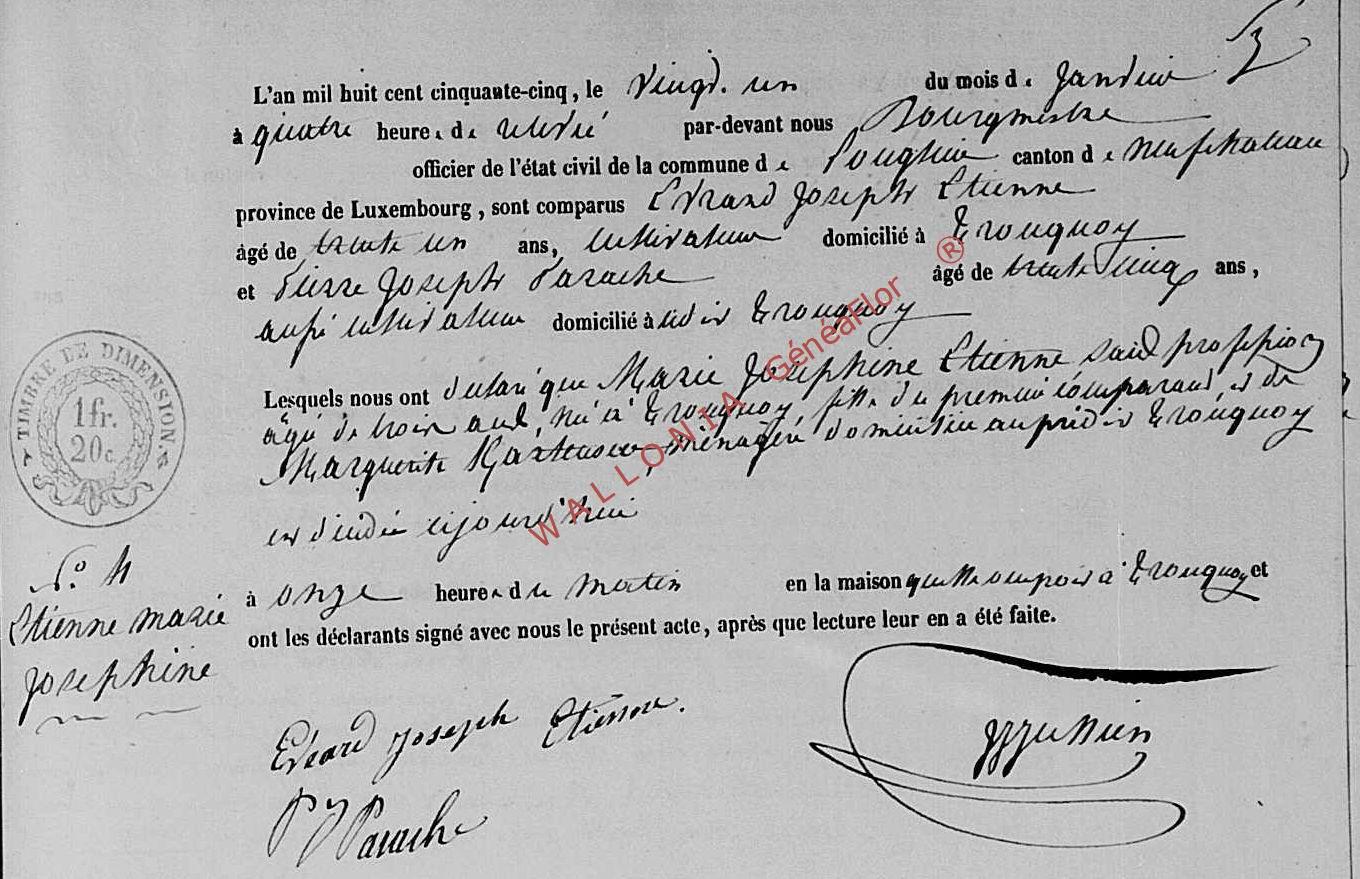 L'an mil huit cent cinquante-cinq, le vingt un du mois de janvier
à quatre heures de relevé par-devant nous Bourgmestre
officier de l'état civil de la commune de canton de neufchateau
province de Luxembourg, sont comparus Evrard Joseph Etienne
âgé de trente un ans, cultivateur domicilié à Tronquoy
et Pierre Joseph Parache âgé de trente cinq ans,
aussi cultivateur domicilié à Tronquoy
Lesquels nous ont déclaré que Marie Josephine Etienne sans profession
âgée de trois ans, née à Tronquoy, fille du premier comparant et de
Marguerite ménagère domiciliée au prédit Tronquoy
est décédée aujourd'hui
à onze heures du matin en la maison qu'elle occupait à Tronquoy et
ont les déclarants signé avec nous le présent acte, après que lecture leur en a été faite.
TIMBRE DE DIMENSION
1 fr.
20 c.
No 4
Etienne marie
josephine
Evrard joseph Etienne.
P J Parache
WALLONIA GénéaFlor ®